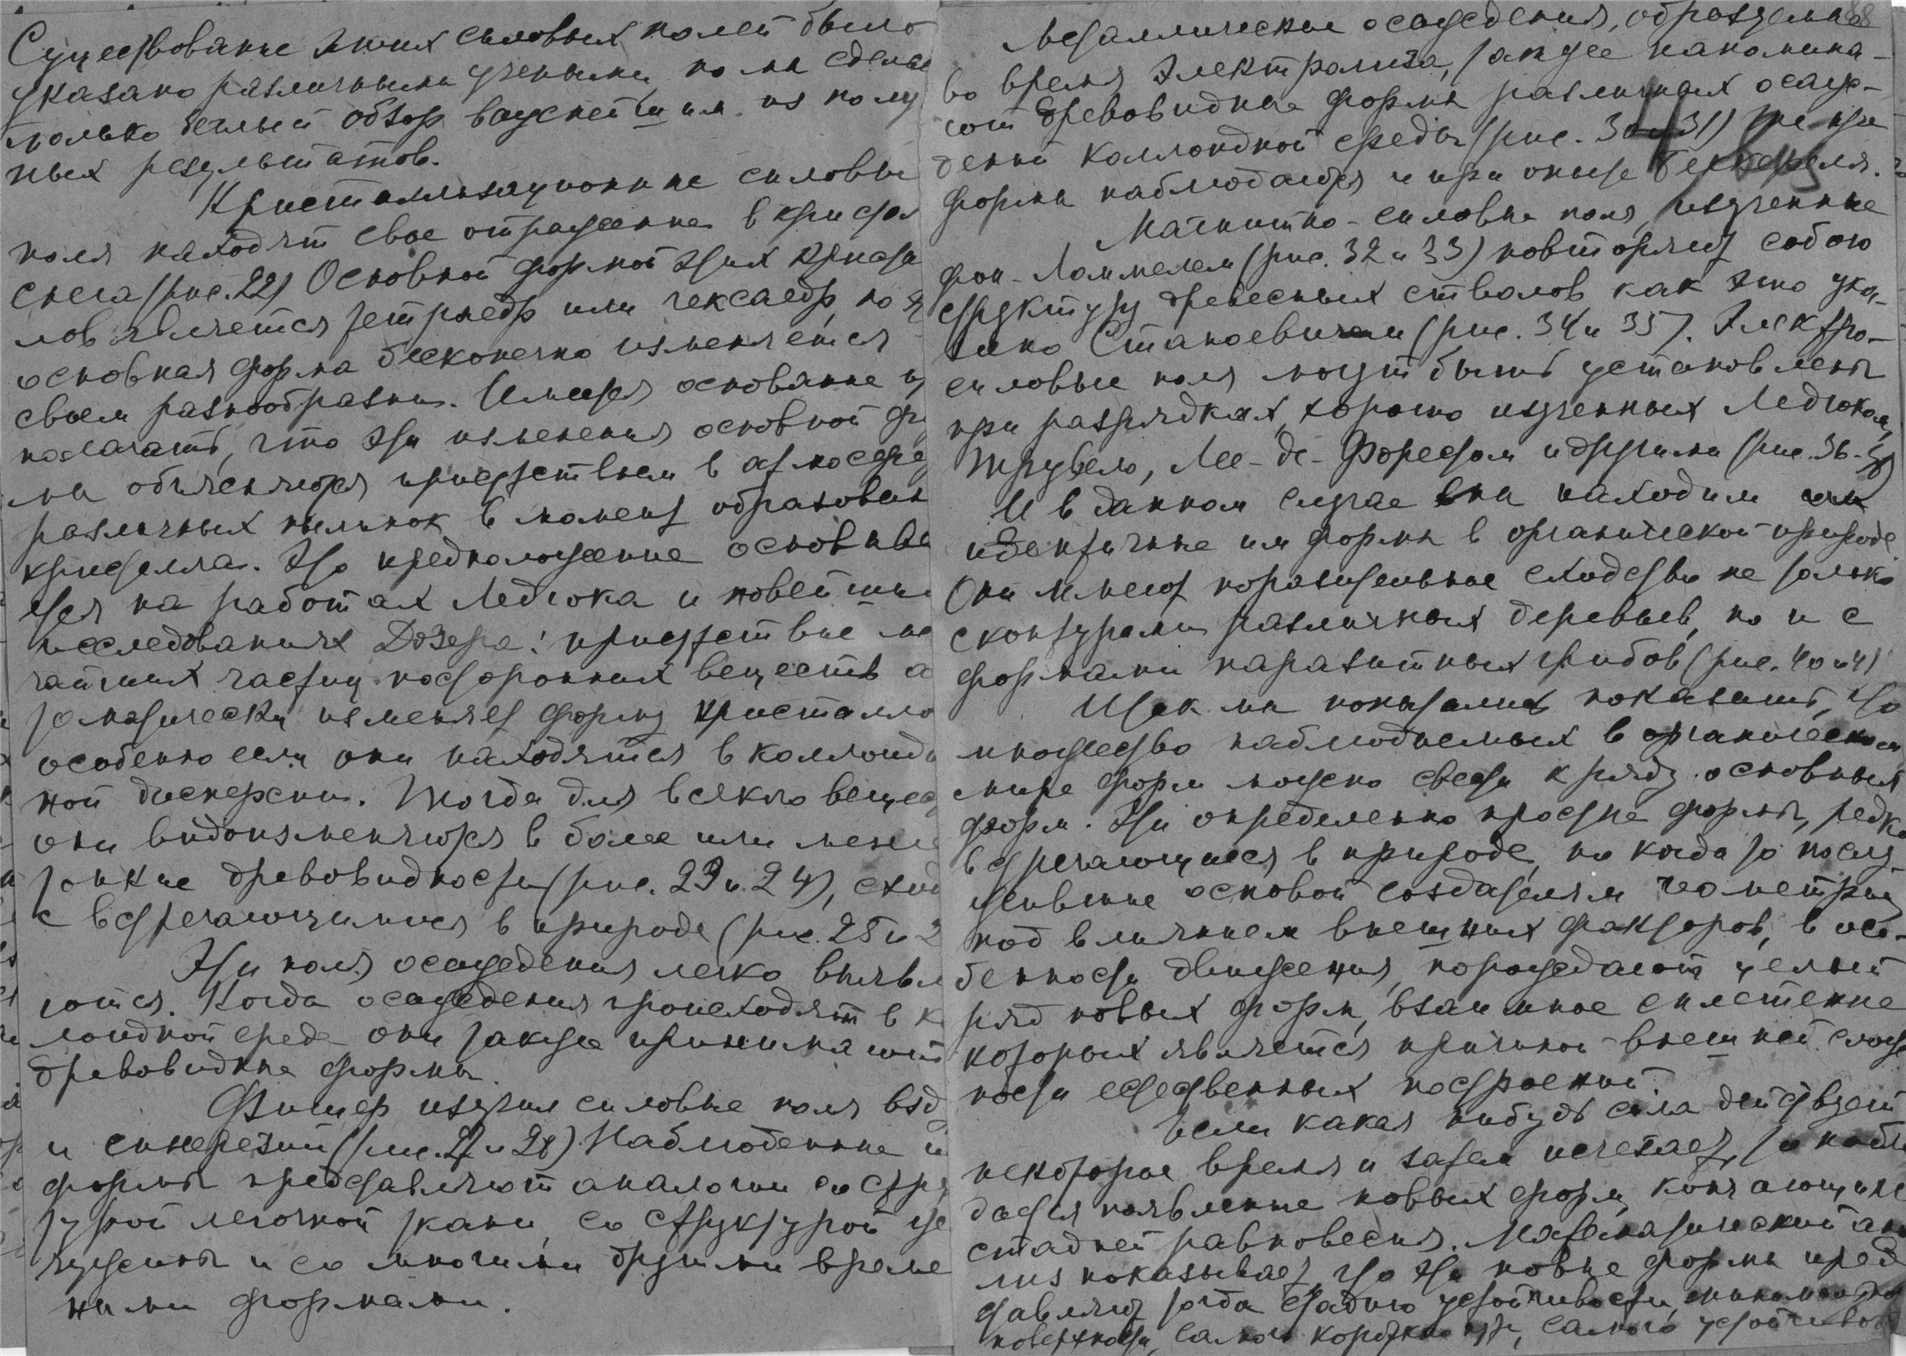 Существование этих силовых полей было
указано различными учеными, но мы сделаем
только беглый обзор важнейшим из полу
ных результатов.
Кристаллизационные силовые
поля находят свое отражение в кристал
снега (рис. 22) Основной формой этих криста
лов является тетраедр или гексаедр, но
основная форма бесконечно изменяется
своем разнообразии. Имеются основание
полагать, что эти изменения основной
мы объясняются присутствием в атмосфере
различных пылинок в момент образован
кристалла. Это предположение основыва
ется на работах Ледюка и новейших
исследованиях Дозера: присутствие ме
чайших частиц посторонних веществ а
томатически изменяет форму кристалло
особенно если они находятся в коллоид
ной дисперсии. Тогда для всякого вещес
они видоизменяются в более или мене
тонкие древовидности (рис. 23 и 24), сход
с встречающимися в природе (рис. 25 и 2
Эти поля осаждения легко выявл
ются. Когда осаждения происходят в к
лоидной среде они также принимают
древовидные формы.
Фишер изучил силовые поля взд
и синерезий (рис. 27 и 28) Наблюденные им
формы представляют аналогии со стру
турой легочной ткани, со структурой
и со многими другими време
ными формами.
88
Металлические осаждения, образуемые
во время электролиза, также напомина-
ют древовидные формы различных осаж-
дений коллоидной среды (рис. 30 и 31)
формы наблюдаются и при опыте
Магнитно-силовые поля, изученные
фон-Ломмелем (рис. 32 и 33) повторяют собою
структуру древесных стволов как это ука-
зано Станоевичем (рис. 34 и 35). Электро-
силовые поля могут быть установлены
при разрядках, хорошо изученных Ледюком,
Трувело, Лее-де-Форестом и другими (рис. 36-39)
И в данном случае мы находим
идентичные им формы в органической природе
Они имеют поразительное сходство не только
с контурами различных деревьев, но и с
формами паразитных грибов (рис. 40 и 41)
Итак мы попытались показать, что
множество наблюдаемых в органическом
мире форм можно свести к ряду основных
форм. Эти определенно простые формы, редко
встречающиеся в природе, но когда то послу
жившие основой создателям геометрий
под влиянием внешних факторов, в осо-
бенности движения, порождают целый
ряд новых форм, взаимное сплетение
которых является причиной внешней слож
ности естественных построений.
Если какая нибудь сила действует
некоторое время и затем исчезает, то набл
дается появление новых форм, кончающихся
стадией равновесия. Математический ана
лиз показывает, что эти новые формы пред
ставляют тогда стадию устойчивости,
поверхности, самого короткого пути, самого устойчивого